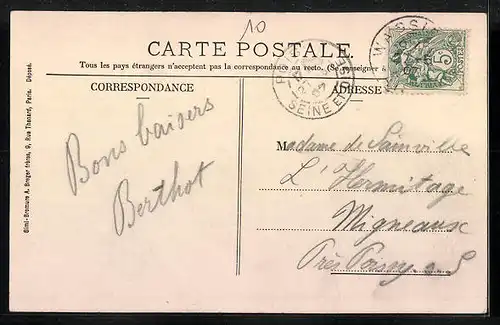 10
CARTE POSTALE.
Tous les pays étrangers n'acceptent pas la correspondance au recto. (Se renseigner à
CORRESPONDANCE
ADRESSE
Bons baisers
Berthot
Madame de Sainville
L'Hermitage
Migneaux
Près Poissy S
SEINE ET OISE
WASSY
5
Simi-Bromure A. Breger frères, 9, Rue Thenard, Paris. Déposé.